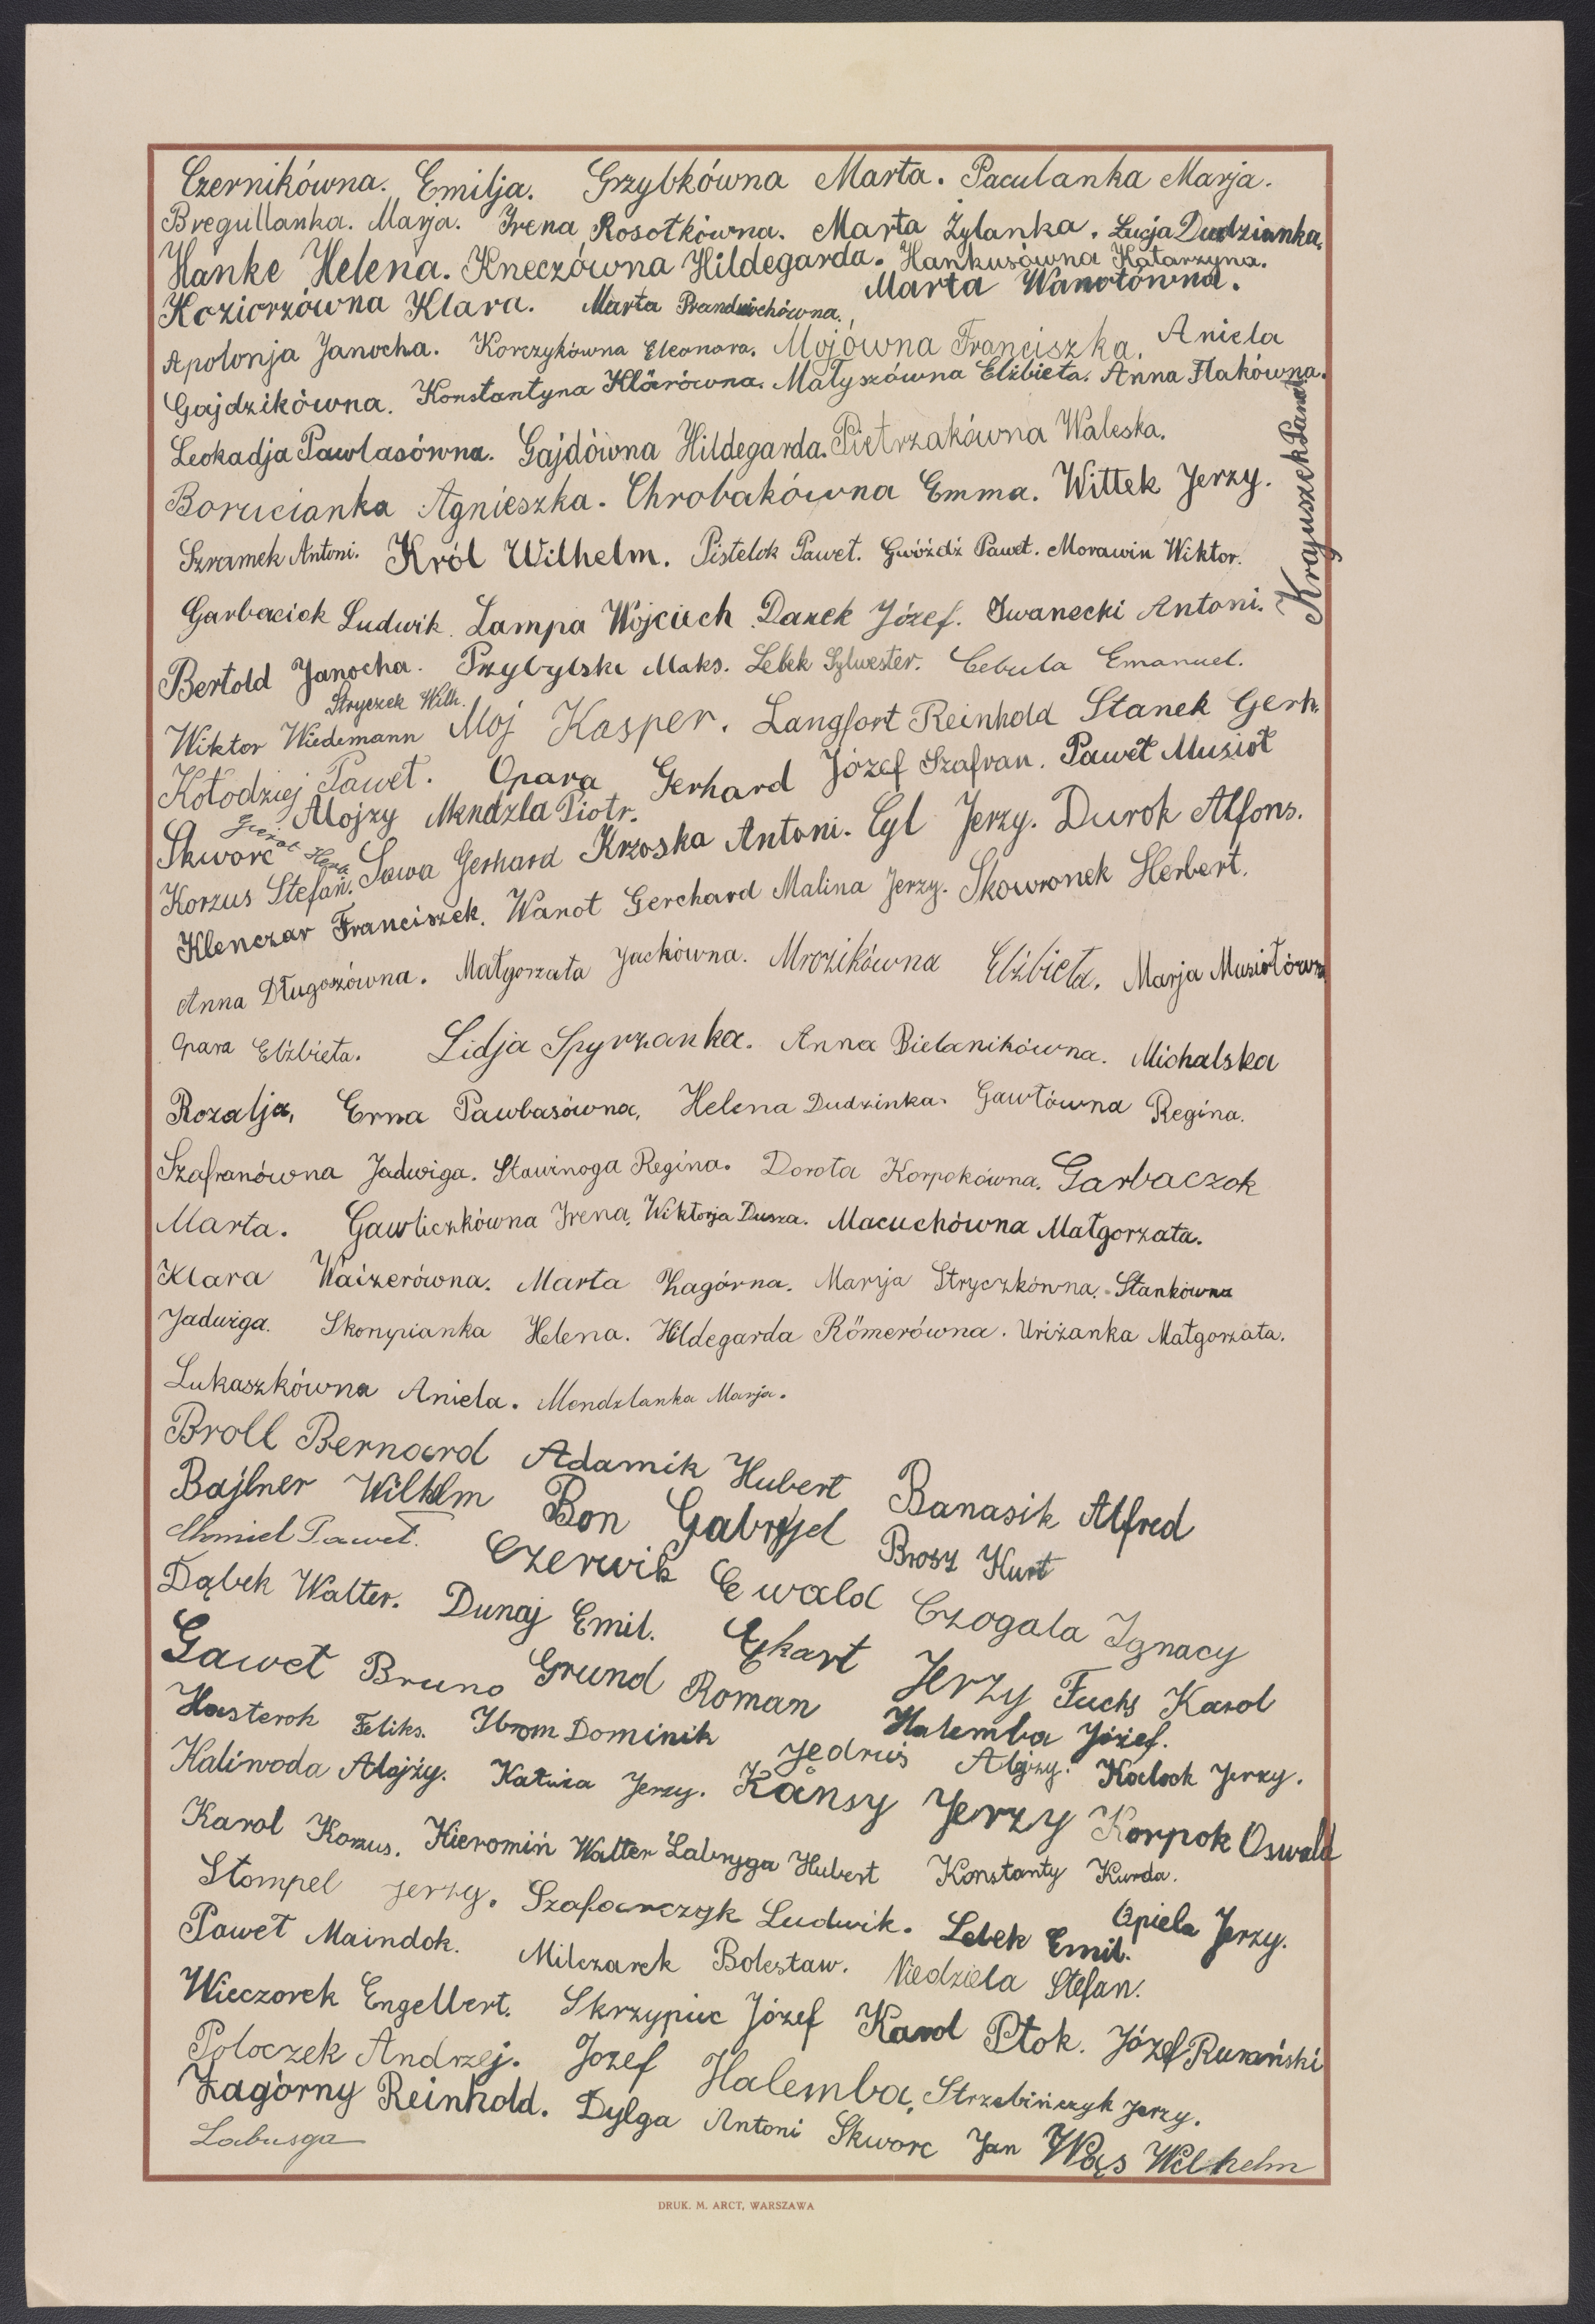 Czernikówna. Emilja. Grzybkówna Marta. Paculanka Marja.
Bregullanka. Marja. Irena Rosotkówna. Marta Żylanka. Łucja Dudzianka.
Hanke Helena. Kneczówna Hildegarda. Hankusówna Katarzyna.
Koziorzówna Klara. Marta Prandwichówna. Marta Wanotówna.
Apolonja Janocha. Korczykówna Eleonora. Mojówna Franciszka. Aniela
Gajdzikówna. Konstantyna Klärówna. Małyszówna Elżbieta. Anna Flakówna.
Leokadja Pawlasówna. Gajdówna Hildegarda. Pietrzakówna Waleska.
Borucianka Agnieszka. Chrobakówna Emma. Wittek Jerzy.
Krajuszek Paweł
Szramek Antoni. Król Wilhelm. Pistelok Paweł. Gwóźdź Paweł. Morawin Wiktor.
Garbaciok Ludwik. Lampa Wojciech. Darek Józef. Iwanecki Antoni.
Bertold Janocha. Przybylski Maks. Lebek Sylwester. Cebula Emanuel.
Stryczek Wilh.
Wiktor Wiedemann Moj Kasper. Langfort Reinhold Stanek Gerh.
Kołodziej Paweł. Opara Gerhard Józef Szafran. Paweł Musioł
Skworc Alojzy Mendzla Piotr.
Korzus Stefan. Sowa Gerhard Krzoska Antoni. Cyl Jerzy. Durok Alfons.
Klenczar Franciszek. Wanot Gerchard Malina Jerzy. Skowronek Herbert.
Anna Długoszówna. Małgorzata Jackówna. Mrozikówna Elżbieta. Marja Musiołówna
Opara Elżbieta. Lidja Spyrzanka. Anna Bielanikówna. Michalska
Rozalja, Erna Pawlasówna, Helena Dudzinka. Gawłówna Regina.
Szafranówna Jadwiga. Stawinoga Regina. Dorota Korpokówna. Garbaczok
Marta. Gawliczkówna Irena, Wiktorja Dusza. Macuchówna Małgorzata.
Klara Waizerówna. Marta Zagórna. Marja Stryczkówna. Stankówna
Jadwiga. Skorupianka Helena. Hildegarda Römerówna. Uriżanka Małgorzata.
Lukaszkówna Aniela. Mendzlanka Marja.
Broll Bernard Adamik Hubert Banasik Alfred
Bajlner Wilhelm Bon Gabryjel Brosz Kurt
Chmiel Paweł. Czerwik Ewald Czogala Ignacy
Dąbek Walter. Dunaj Emil. Ekart Jerzy Fuchs Karol
Gaweł Bruno Grund Roman Halemba Józef.
Hasterok Feliks. Ibrom Dominik Jedruś Alojzy. Kalock Jerzy.
Kaliwoda Alojzy. Katuża Jerzy. Kånsy Jerzy Korpok Oswald
Karol Korzus. Kieromin Walter Labryga Hubert Konstanty Kurda.
Stompel Jerzy. Szaforczyk Ludwik. Lebek Emil. Opiela Jerzy.
Paweł Maindok. Milczarek Bolesław. Niedziela Stefan.
Wieczorek Engelbert. Skrzypiec Józef Karol Ptok. Józef Rurański
Poloczek Andrzej. Jozef Halemba, Strzebińczyk Jerzy.
Zagórny Reinhold. Dylga Antoni Skworc Jan Wąs Wilhelm
Labusga
DRUK. M. ARCT, WARSZAWA